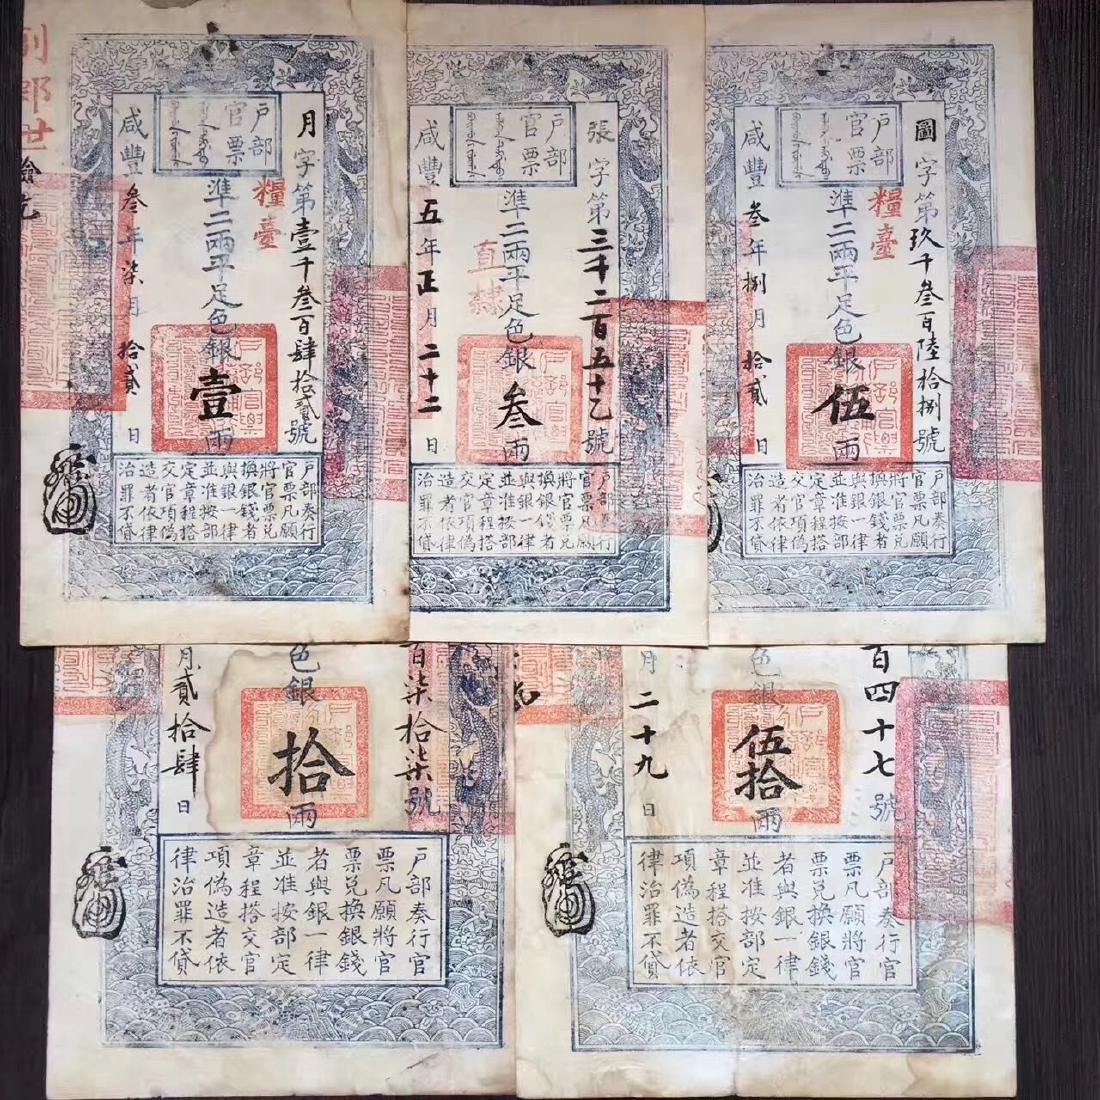 月字第壹千叁百肆拾貳號
戶部官票
糧臺
準二兩平足色銀壹兩
咸豐叁年柒月拾貳日
戶部奏行
官票凡願
將官票兌
換銀錢者
與銀一律
並准按部
定章程搭
交官項偽
造者依律
治罪不貸
張字第三千二百五十乙號
戶部官票
準二兩平足色銀叁兩
直隸
咸豐五年正月二十二日
戶部奏行
官票凡願
將官票兌
換銀錢者
與銀一律
並准按部
定章程搭
交官項偽
造者依律
治罪不貸
圖字第玖千叁百陸拾捌號
戶部官票
糧臺
準二兩平足色銀伍兩
咸豐叁年捌月拾貳日
戶部奏行
官票凡願
將官票兌
換銀錢者
與銀一律
並准按部
定章程搭
交官項偽
造者依律
治罪不貸
百柒拾柒號
色銀拾兩
月貳拾肆日
戶部奏行官
票凡願將官
票兌換銀錢
者與銀一律
並准按部定
章程搭交官
項偽造者依
律治罪不貸
百四十七號
色銀伍拾兩
月二十九日
戶部奏行官
票凡願將官
票兌換銀錢
者與銀一律
並准按部定
章程搭交官
項偽造者依
律治罪不貸